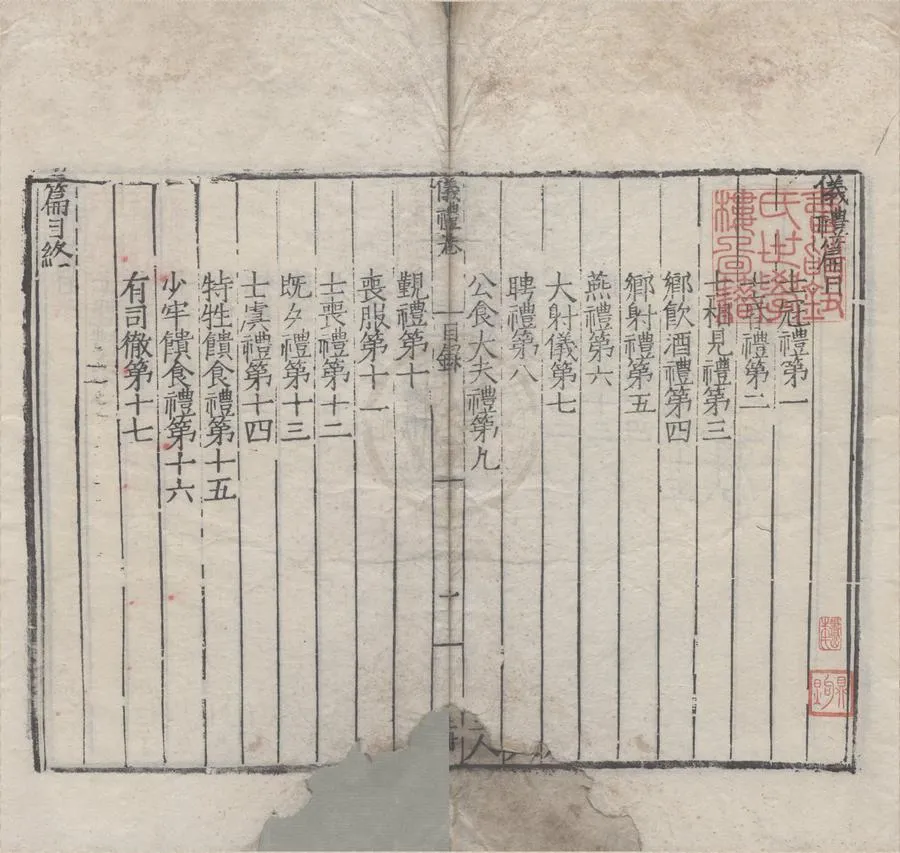 儀禮篇目
士冠禮第一
士昏禮第二
士相見禮第三
鄉飲酒禮第四
鄉射禮第五
燕禮第六
大射儀第七
聘禮第八
公食大夫禮第九
儀禮卷 目錄 一
覲禮第十
喪服第十一
士喪禮第十二
既夕禮第十三
士虞禮第十四
特牲饋食禮第十五
少牢饋食禮第十六
有司徹第十七
篇目終